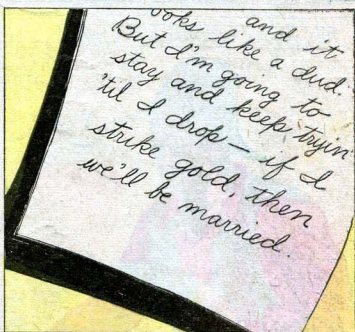 ooks like a dud.
and it
But I'm going to
stay and keep tryin'
'til I drop — if I
strike gold, then
we'll be married.